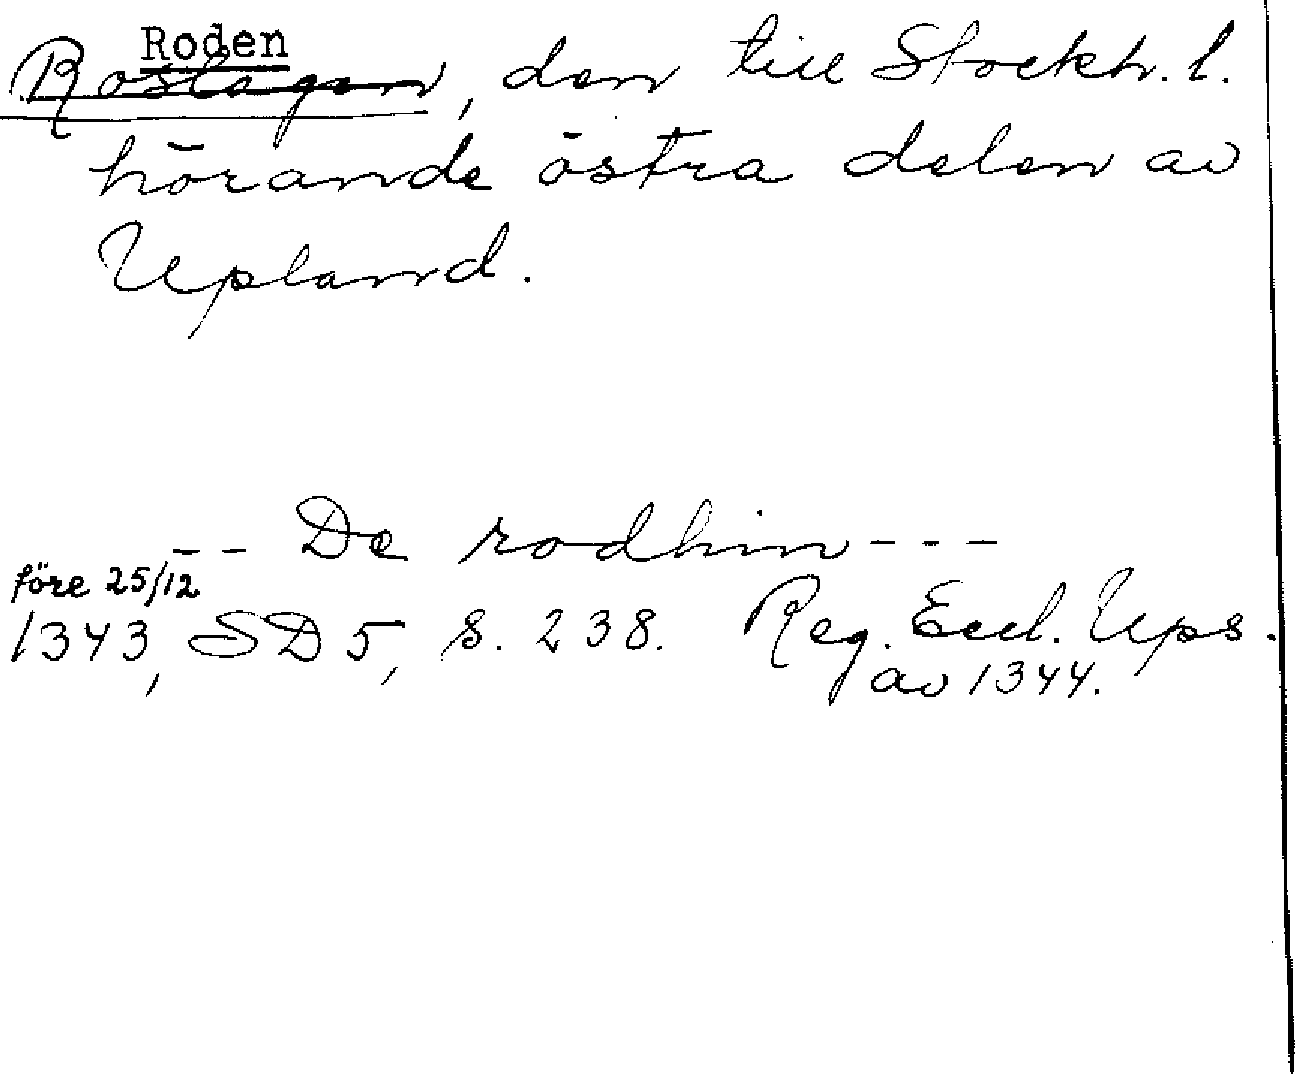 Roden
Roslagen, den till Stockh. l.
hörande östra delen av
Upland.
-- De rodhin ---
före 25/12
1343, SD 5, s. 238. Reg. Eccl. Ups.
av 1344.